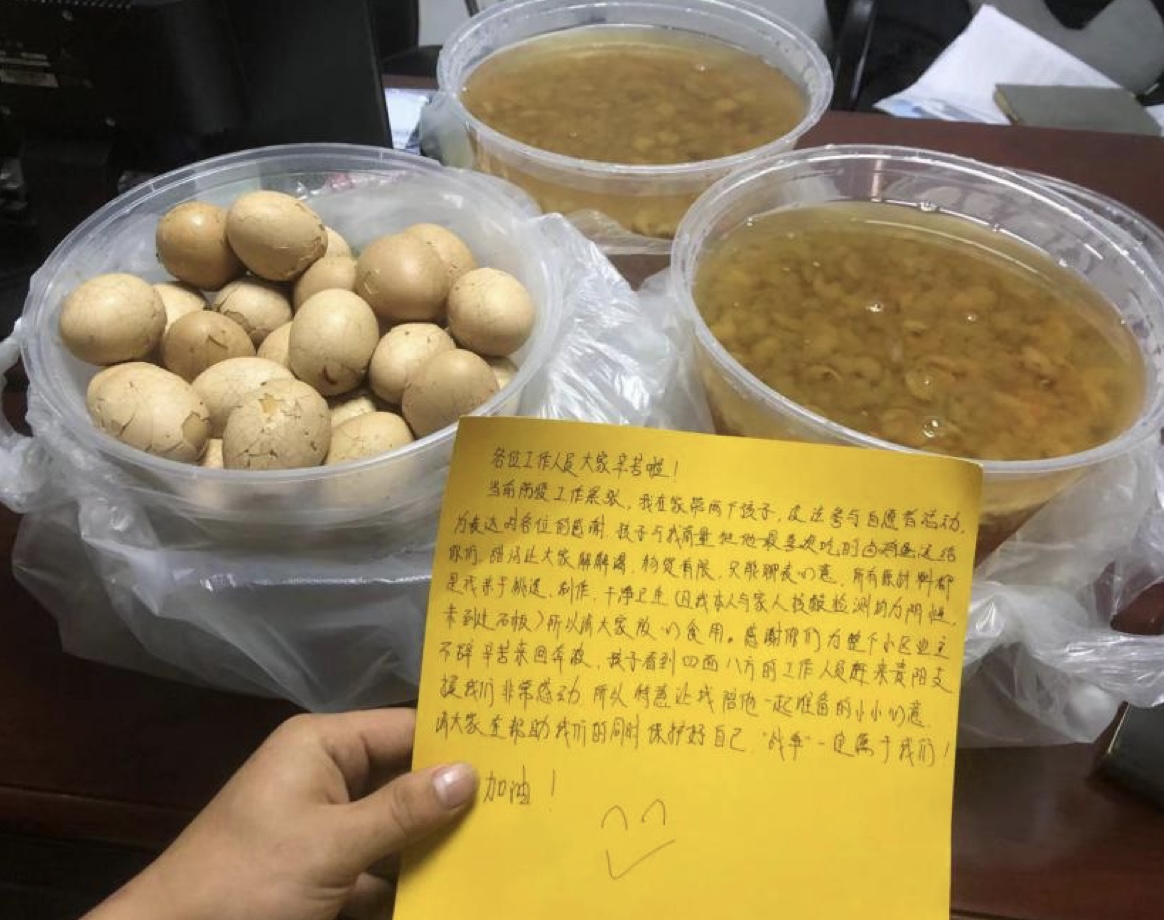 各位工作人员大家辛苦啦！
当前防疫工作紧张，我在家带两个孩子，没法参与自愿者活动，
为表达对各位的感谢，孩子与我商量把他最喜欢吃的卤鸡蛋送给
你们，甜汤让大家解解渴，物资有限，只能聊表心意，所有原材料都
是我亲手挑选、制作，干净卫生（因我本人与家人核酸检测均为阴性，
未到过石板）所以请大家放心食用。感谢你们为整个小区业主
不辞辛苦来回奔波，孩子看到四面八方的工作人员赶来贵阳支
援我们非常感动，所以特意让我陪他一起准备的小小心意，
请大家在帮助我们的同时保护好自己，“战争”一定属于我们！
加油！